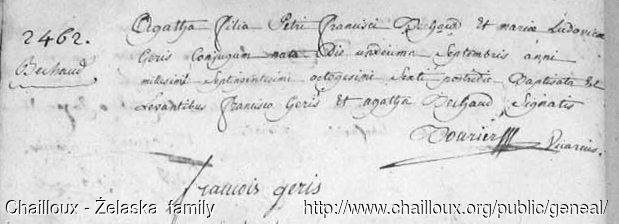 2462.
Bechaud
Agatha filia Petri Francisci Bechaud et mariæ Ludovicæ
Geris Conjugum nata Die undecima Septembris anni
milesimi Septingentisimi octogesimi Sexti postridie Baptisata Est
Levantibus Francisco Geris et agatha Bechaud Signatis
Bourier Vicarius.
francois geris
Chailloux - Żelaska family http://www.chailloux.org/public/geneal/